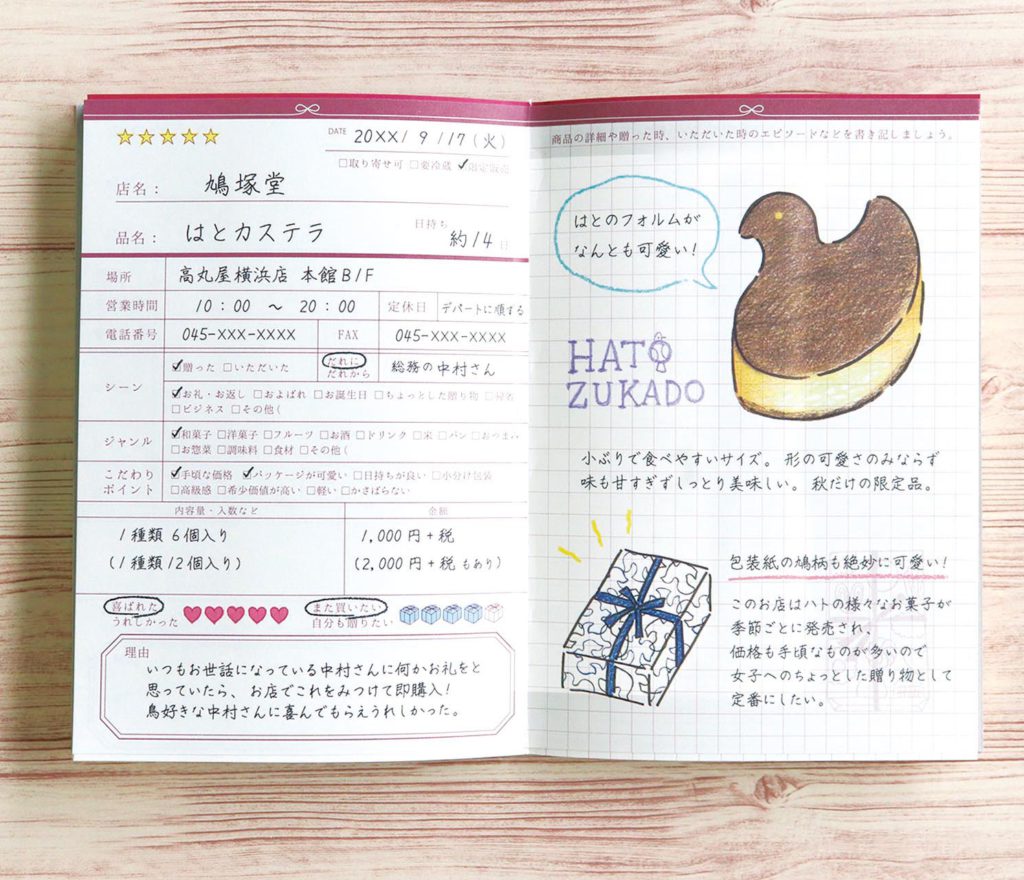 DATE 20XX/ 9 /17(火)
□取り寄せ可 □要冷蔵 ✓限定販売
店名： 鳩塚堂
品名： はとカステラ 日持ち 約14日
場所 高丸屋横浜店 本館B1F
営業時間 10:00 ～ 20:00 定休日 デパートに順する
電話番号 045-XXX-XXXX FAX 045-XXX-XXXX
シーン ✓贈った □いただいた だれに だれから 総務の中村さん
✓お礼・お返し □およばれ □お誕生日 □ちょっとした贈り物 □帰省
□ビジネス □その他（
ジャンル ✓和菓子 □洋菓子 □フルーツ □お酒 □ドリンク □米 □パン □おつまみ
□お惣菜 □調味料 □食材 □その他（
こだわりポイント ✓手頃な価格 ✓パッケージが可愛い □日持ちが良い □小分け包装
□高級感 □希少価値が高い □軽い □かさばらない
内容量・入数など 金額
1種類 6個入り 1,000円+税
(1種類 12個入り) (2,000円+税もあり)
喜ばれた また買いたい
うれしかった 自分も贈りたい
理由
いつもお世話になっている中村さんに何かお礼をと
思っていたら、お店でこれをみつけて即購入！
鳥好きな中村さんに喜んでもらえうれしかった。
商品の詳細や贈った時、いただいた時のエピソードなどを書き記しましょう。
はとのフォルムが
なんとも可愛い！
HATO
ZUKADO
小ぶりで食べやすいサイズ。形の可愛さのみならず
味も甘すぎずしっとり美味しい。秋だけの限定品。
包装紙の鳩柄も絶妙に可愛い！
このお店はハトの様々なお菓子が
季節ごとに発売され、
価格も手頃なものが多いので
女子へのちょっとした贈り物として
定番にしたい。